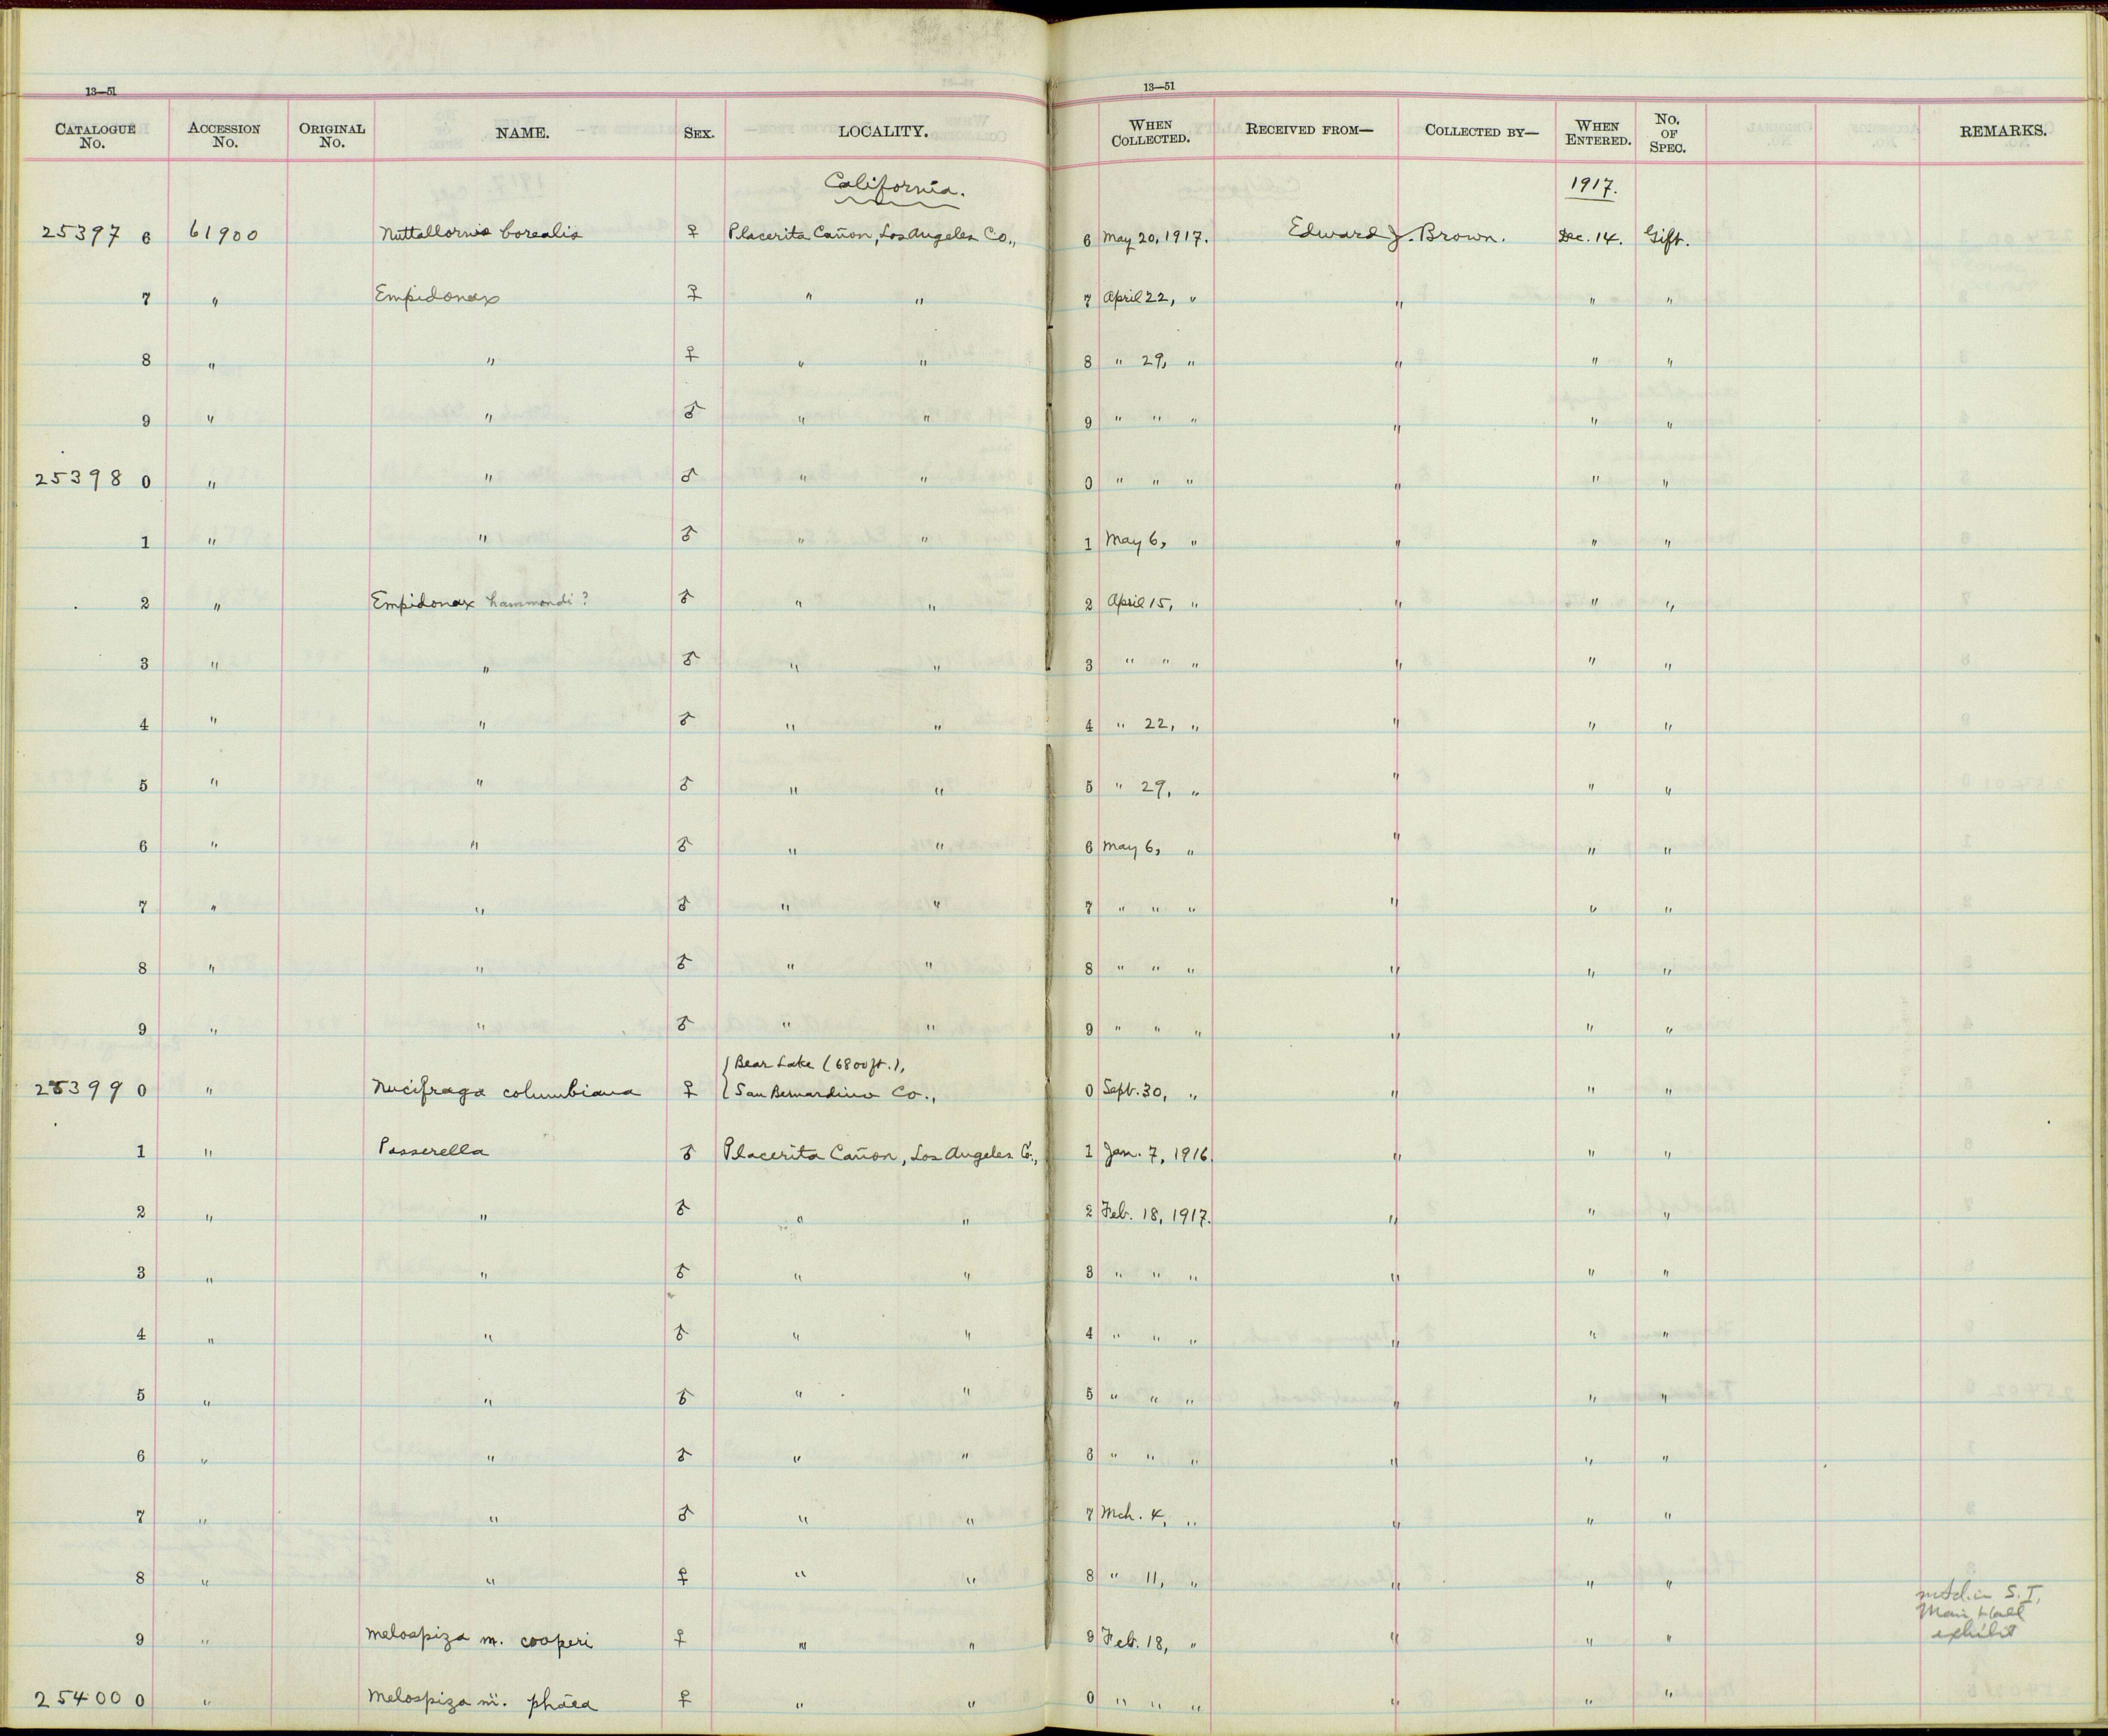 13—51 13—51
CATALOGUE No. ACCESSION No. ORIGINAL No. NAME. SEX. LOCALITY. WHEN COLLECTED. RECEIVED FROM— COLLECTED BY— WHEN ENTERED. No. OF SPEC. REMARKS.
California. 1917.
25397 6 61900 Nuttallornis borealis ♀ Placerita Cañon, Los Angeles Co., 6 May 20, 1917. Edward J. Brown. Dec. 14. Gift.
7 " Empidonax ♀ " " 7 April 22, " " " "
8 " " ♀ " " 8 " 29, " " " "
9 " " ♂ " " 9 " " " " " "
25398 0 " " ♂ " " 0 " " " " " "
1 " " ♂ " " 1 May 6, " " " "
2 " Empidonax hammondi ? ♂ " " 2 April 15, " " " "
3 " " ♂ " " 3 " " " " " "
4 " " ♂ " " 4 " 22, " " " "
5 " " ♂ " " 5 " 29, " " " "
6 " " ♂ " " 6 May 6, " " " "
7 " " ♂ " " 7 " " " " " "
8 " " ♂ " " 8 " " " " " "
9 " " ♂ " " 9 " " " " " "
Bear Lake (6800 ft.),
25399 0 " Nucifraga columbiana ♀ San Bernardino Co., 0 Sept. 30, " " " "
1 " Passerella ♂ Placerita Cañon, Los Angeles Co., 1 Jan. 7, 1916. " " "
2 " " ♂ " " 2 Feb. 18, 1917. " " "
3 " " ♂ " " 3 " " " " " "
4 " " ♂ " " 4 " " " " " "
5 " " ♂ " " 5 " " " " " "
6 " " ♂ " " 6 " " " " " "
7 " " ♂ " " 7 Mch. 4, " " " "
8 " " ♀ " " 8 " 11, " " " "
mtd. in S. I.
Main Hall
exhibit
9 " Melospiza m. cooperi ♀ " " 9 Feb. 18, " " " "
25400 0 " Melospiza m. phaea ♀ " " 0 " " " " " "